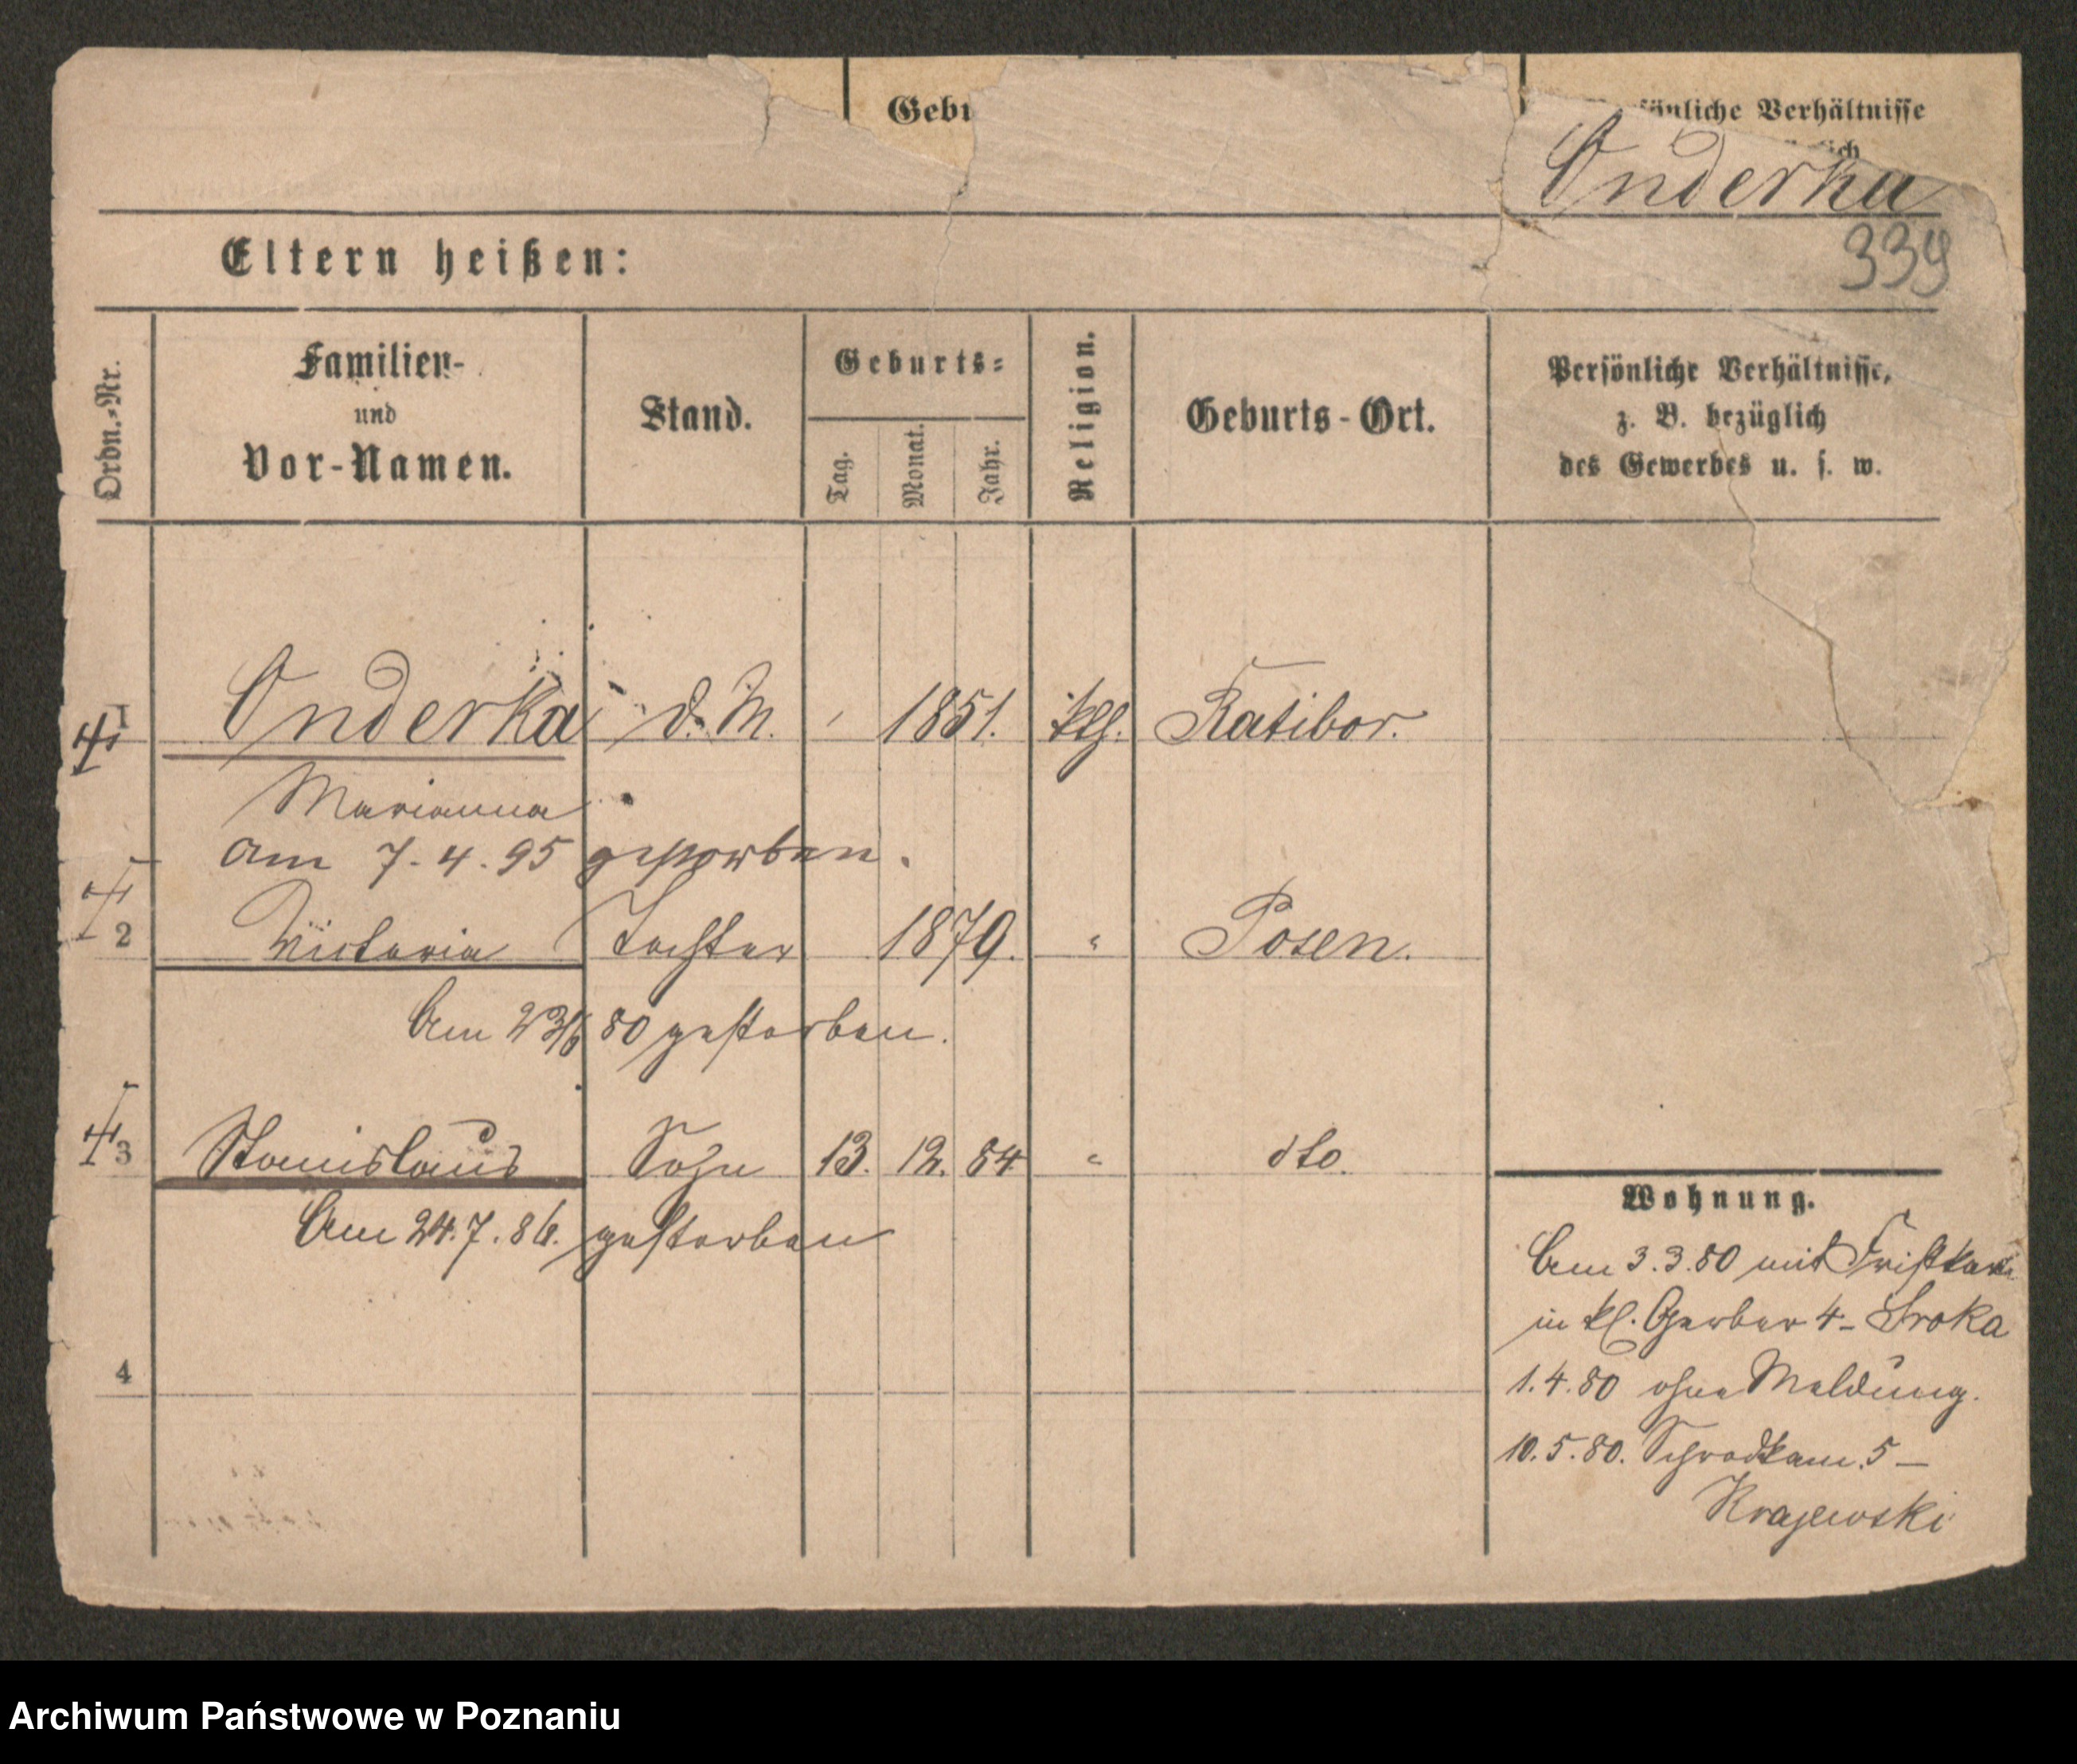 Gebu
önliche Verhältnisse
Onderka
339
Eltern heißen:
Ordn.-Nr.
Familien-
und
Vor-Namen.
Stand.
Geburts-
Tag.
Monat.
Jahr.
Religion.
Geburts-Ort.
Persönliche Verhältnisse,
z. B. bezüglich
des Gewerbes u. s. w.
1 Onderka d. M. 1851. ktl. Ratibor.
Marianna
am 7-4.95 gestorben.
2 Victoria Tochter 1879. " Posen.
Am 23/6 80 gestorben.
3 Stanislaus Sohn 13. 12. 84 " dto.
Am 24.7.86. gestorben
4
Wohnung.
Am 3.3.80 mit
in kl. Gerber 4- Sroka
1.4.80 ohne Meldung.
10.5.80. Schrodkam. 5 -
Krajewski
Archiwum Państwowe w Poznaniu